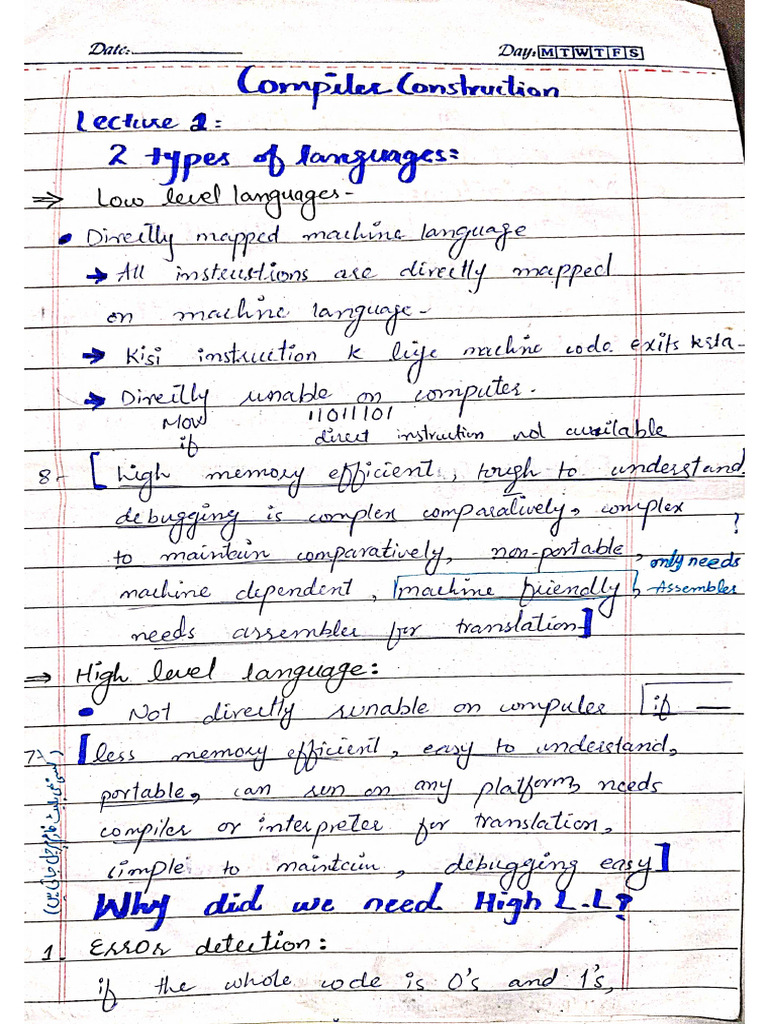 Date:
Day: M T W T F S
Compiler Construction
Lecture 1:
2 types of languages:
⇒ Low level languages-
• Directly mapped machine language
→ All instructions are directly mapped
on machine language-
→ Kisi instruction k liye machine code exits krta-
→ Direilly runable on computer-
Mov 11011101
if direct instruction not available
8- [high memory efficient, tough to understand
debugging is complex comparatively, complex
to maintain comparatively, non-portable, ?
only needs
machine dependent, machine friendly, Assembler
needs assembler for translation]
⇒ High level language:
• Not directly runable on computer if —
7- [less memory efficient, easy to understand,
portable, can run on any platform, needs
compiler or interpreter for translation,
simple to maintain, debugging easy]
Why did we need High L.L?
1- Error detection:
if the whole code is 0's and 1's,